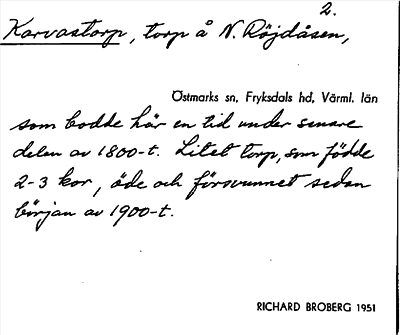 2.
Karvastorp, torp å N. Röjdåsen,
Östmarks sn, Fryksdals hd, Värml. län
som bodde här en tid under senare
delen av 1800-t. Litet torp, som födde
2-3 kor, öde och försvunnet sedan
början av 1900-t.
RICHARD BROBERG 1951